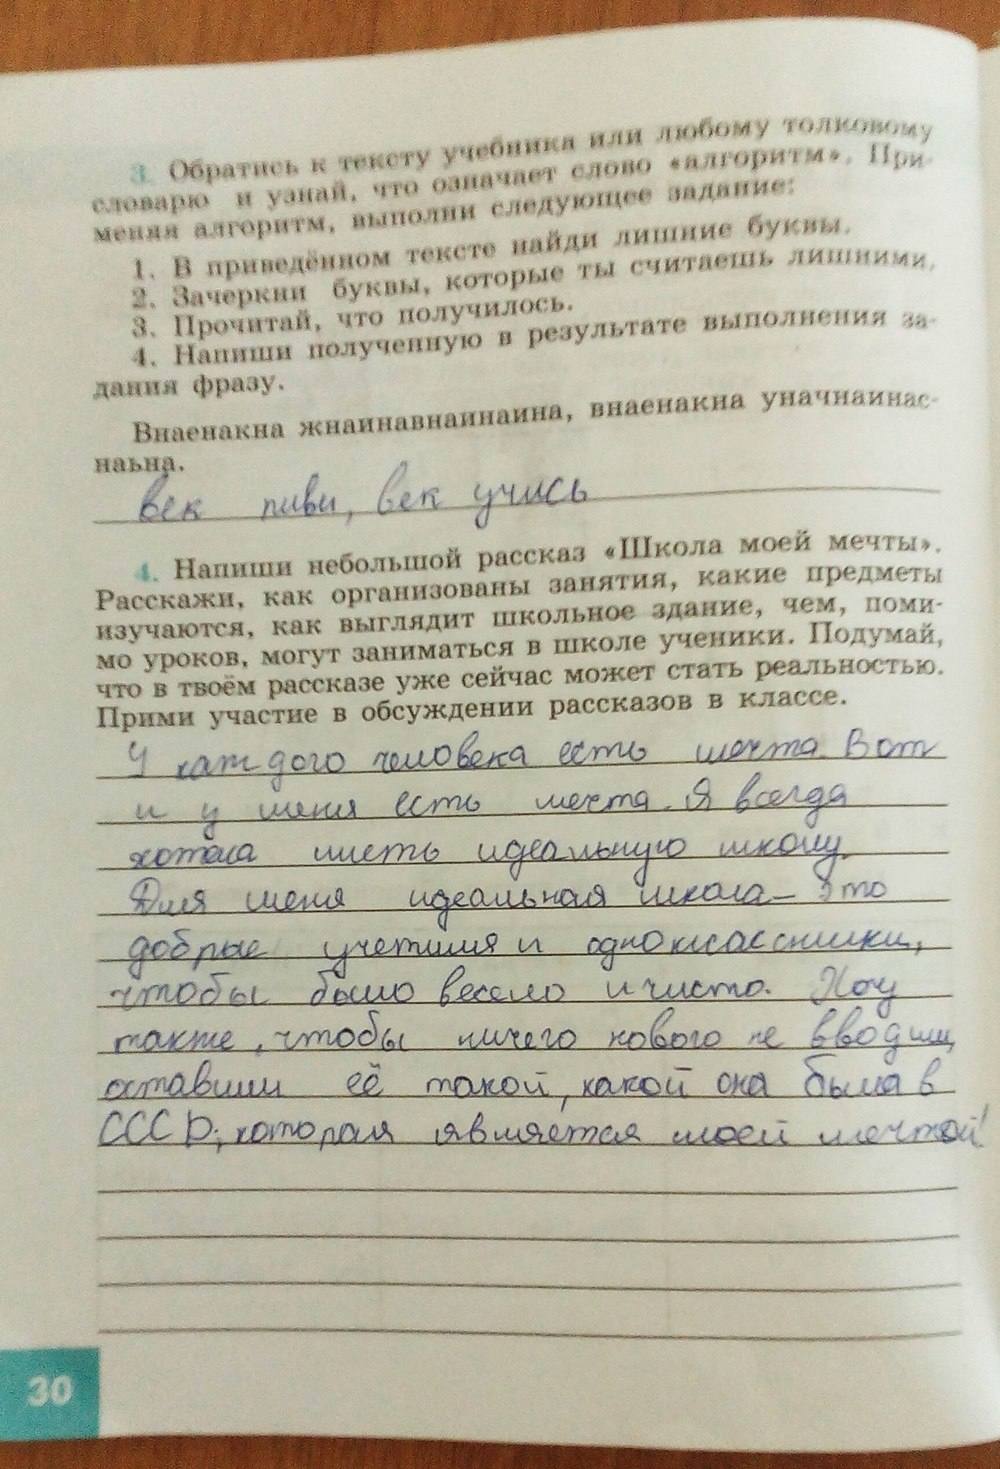 3. Обратись к тексту учебника или любому толковому
словарю и узнай, что означает слово «алгоритм». При-
меняя алгоритм, выполни следующее задание:
1. В приведённом тексте найди лишние буквы.
2. Зачеркни буквы, которые ты считаешь лишними.
3. Прочитай, что получилось.
4. Напиши полученную в результате выполнения за-
дания фразу.
Внаенакна жнаинавнаинаина, внаенакна уначнаинас-
наьна.
век живи, век учись
4. Напиши небольшой рассказ «Школа моей мечты».
Расскажи, как организованы занятия, какие предметы
изучаются, как выглядит школьное здание, чем, поми-
мо уроков, могут заниматься в школе ученики. Подумай,
что в твоём рассказе уже сейчас может стать реальностью.
Прими участие в обсуждении рассказов в классе.
У каждого человека есть мечта. Вот
и у меня есть мечта. Я всегда
хотела иметь идеальную школу.
Для меня идеальная школа – это
добрые учетиля и одноклассники,
чтобы было весело и чисто. Хочу
также, чтобы ничего нового не вводили,
оставили её такой, какой она была в
СССР, которая является моей мечтой!
30